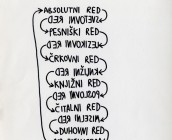 ABSOLUTNI RED
SVETOVNI RED
PESNIŠKI RED
JEZIKOVNI RED
ČRKOVNI RED
RED
KNJIŽNI RED
POSLOVNI RED
ČITALNI RED
RED
DUHOVNI RED